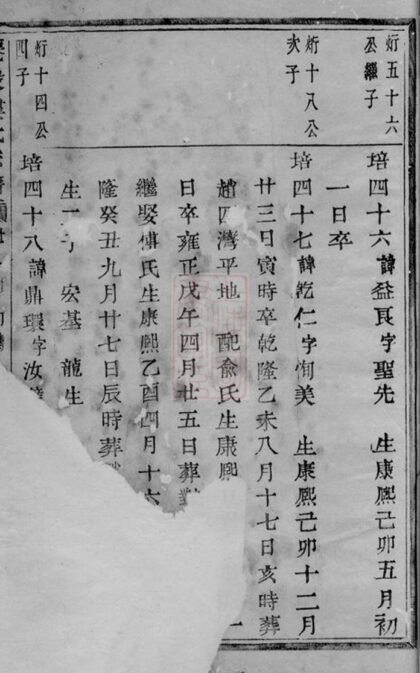 炘五十六
公繼子
培四十六諱益良字聖先 生康熙己卯五月初
一日卒
炘十八公
次子
培四十七諱乾仁字恂美 生康熙己卯十二月
廿三日寅時卒乾隆乙未八月十七日亥時葬
趙四灣平地 配俞氏生康熙
日卒雍正戊午四月廿五日葬
繼娶傅氏生康熙乙酉四月十六
隆癸丑九月廿七日辰時葬
生二子 宏基 龍生
炘十四公
四子
培四十八諱鼎環字汝